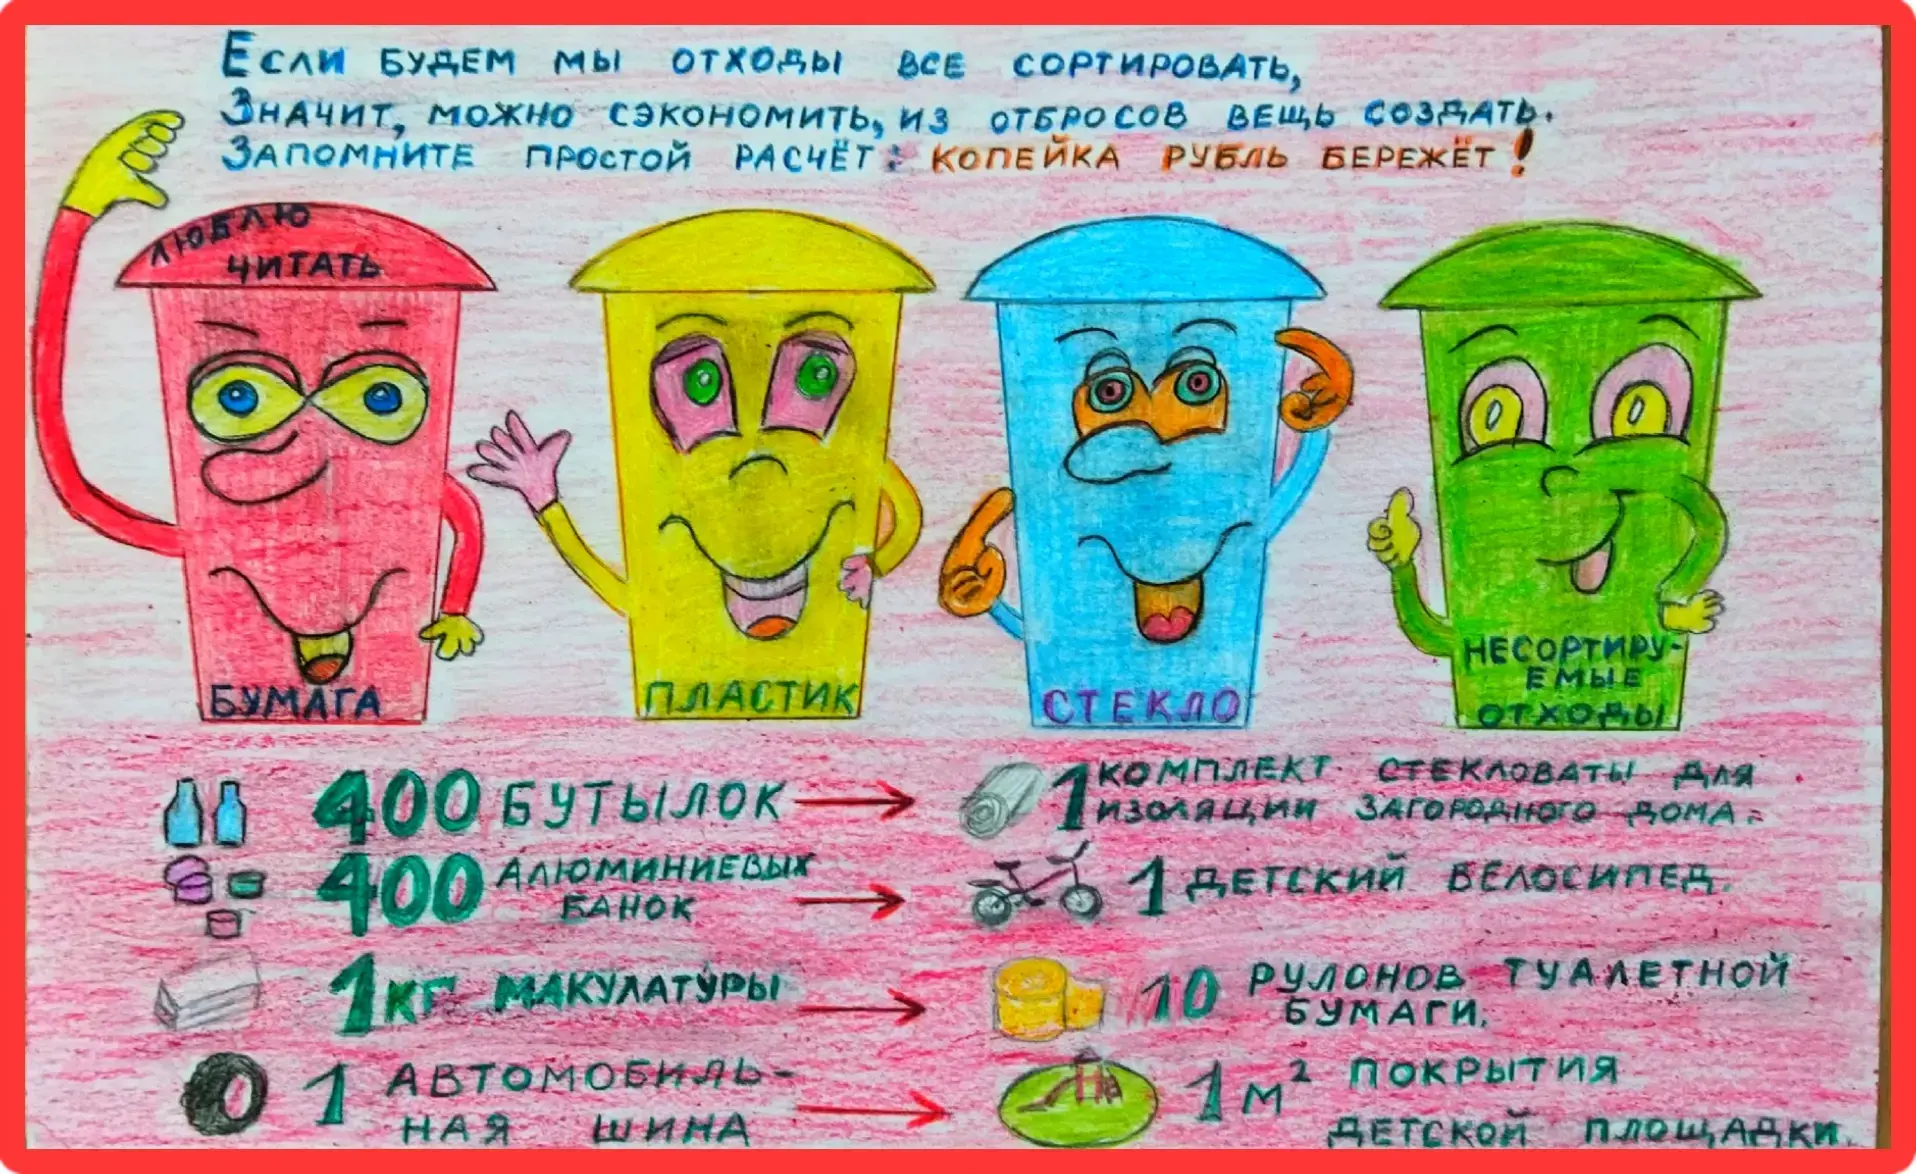 Если будем мы отходы все сортировать,
Значит, можно сэкономить, из отбросов вещь создать.
Запомните простой расчёт: копейка рубль бережёт!
Люблю
читать
Бумага
Пластик
Стекло
Несортиру-
емые
отходы
400 бутылок
1 комплект стекловаты для
изоляции загородного дома.
400 алюминиевых
банок
1 детский велосипед.
1 кг макулатуры
10 рулонов туалетной
бумаги.
1 автомобиль-
ная шина
1 м² покрытия
детской площадки.